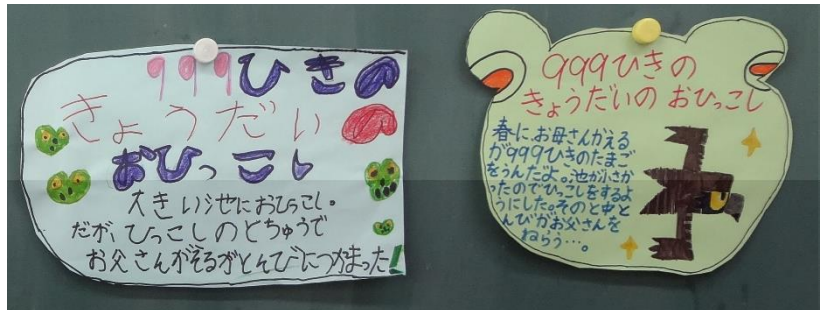 999ひきの
きょうだいの
おひっこし
大きい池におひっこし。
だが、ひっこしのとちゅうで
お父さんがえるがとんびにつかまった!
999ひきの
きょうだいの おひっこし
春に、お母さんがえる
が999ひきのたまご
をうんだよ。池が小さか
ったのでひっこしをするよ
うにした。そのと中と
んびがお父さんを
ねらう…。